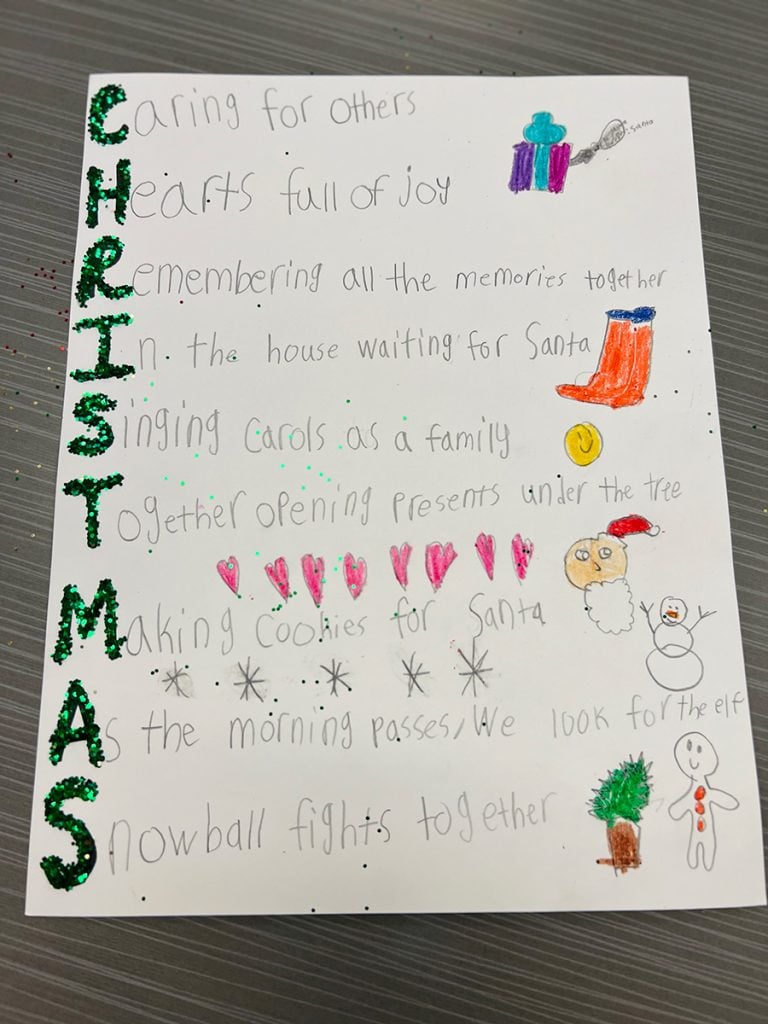 Caring for others
Santa
Hearts full of joy
Remembering all the memories together
In the house waiting for Santa
Singing carols as a family
Together opening presents under the tree
Making cookies for Santa
As the morning passes, We look for the elf
Snowball fights together